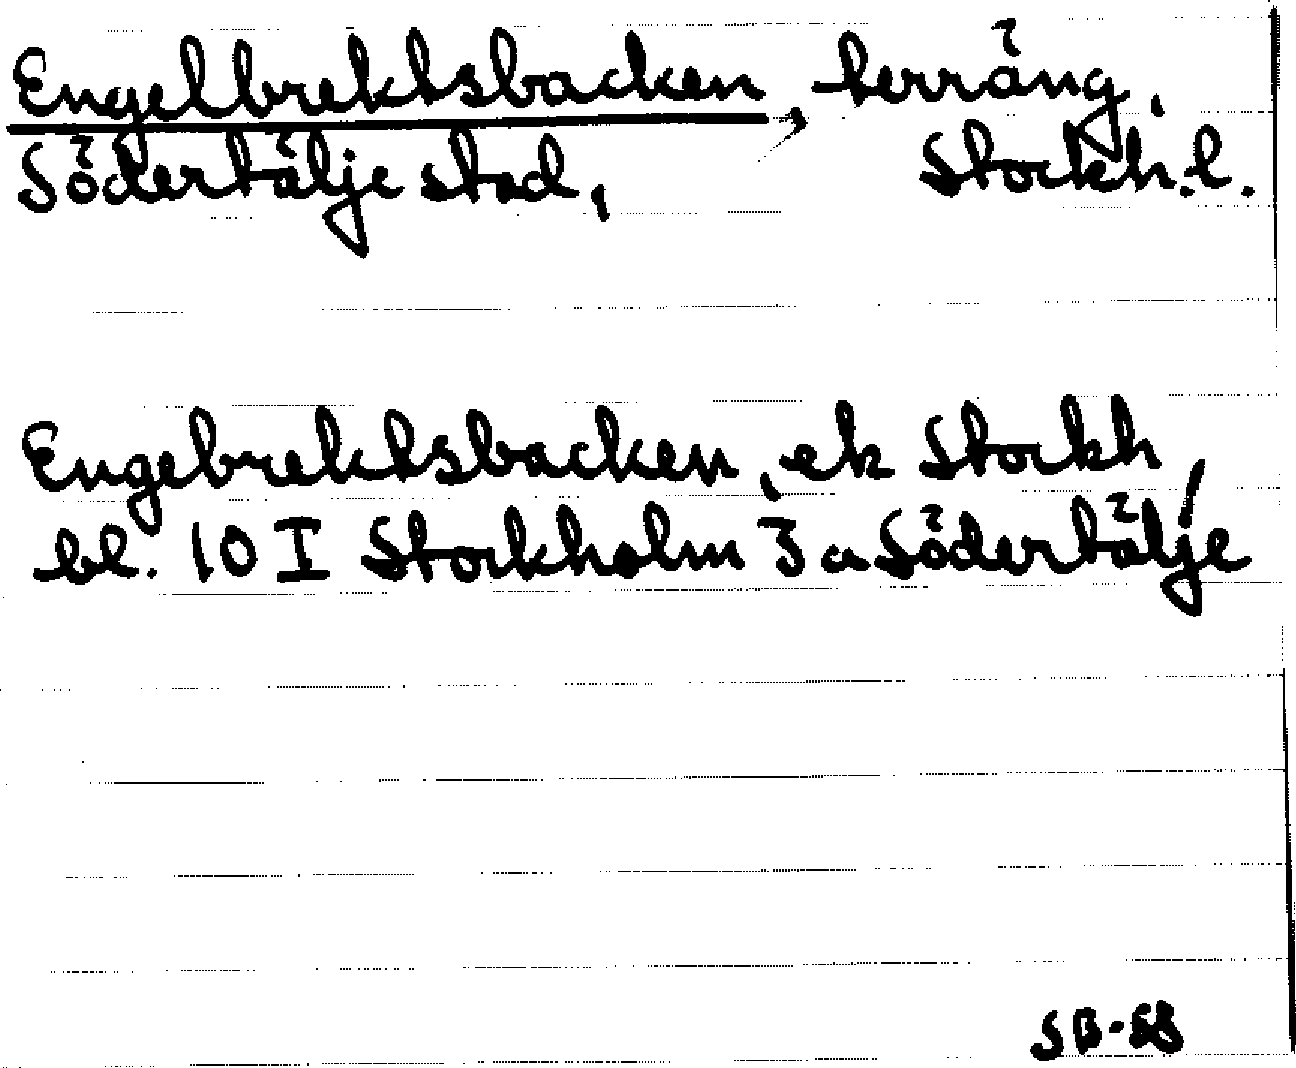 Engelbrektsbacken, terräng,
Södertälje stad, Stockh.l.
Engebrektsbacken, ek Stockh,
bl. 10 I Stockholm 3 a Södertälje